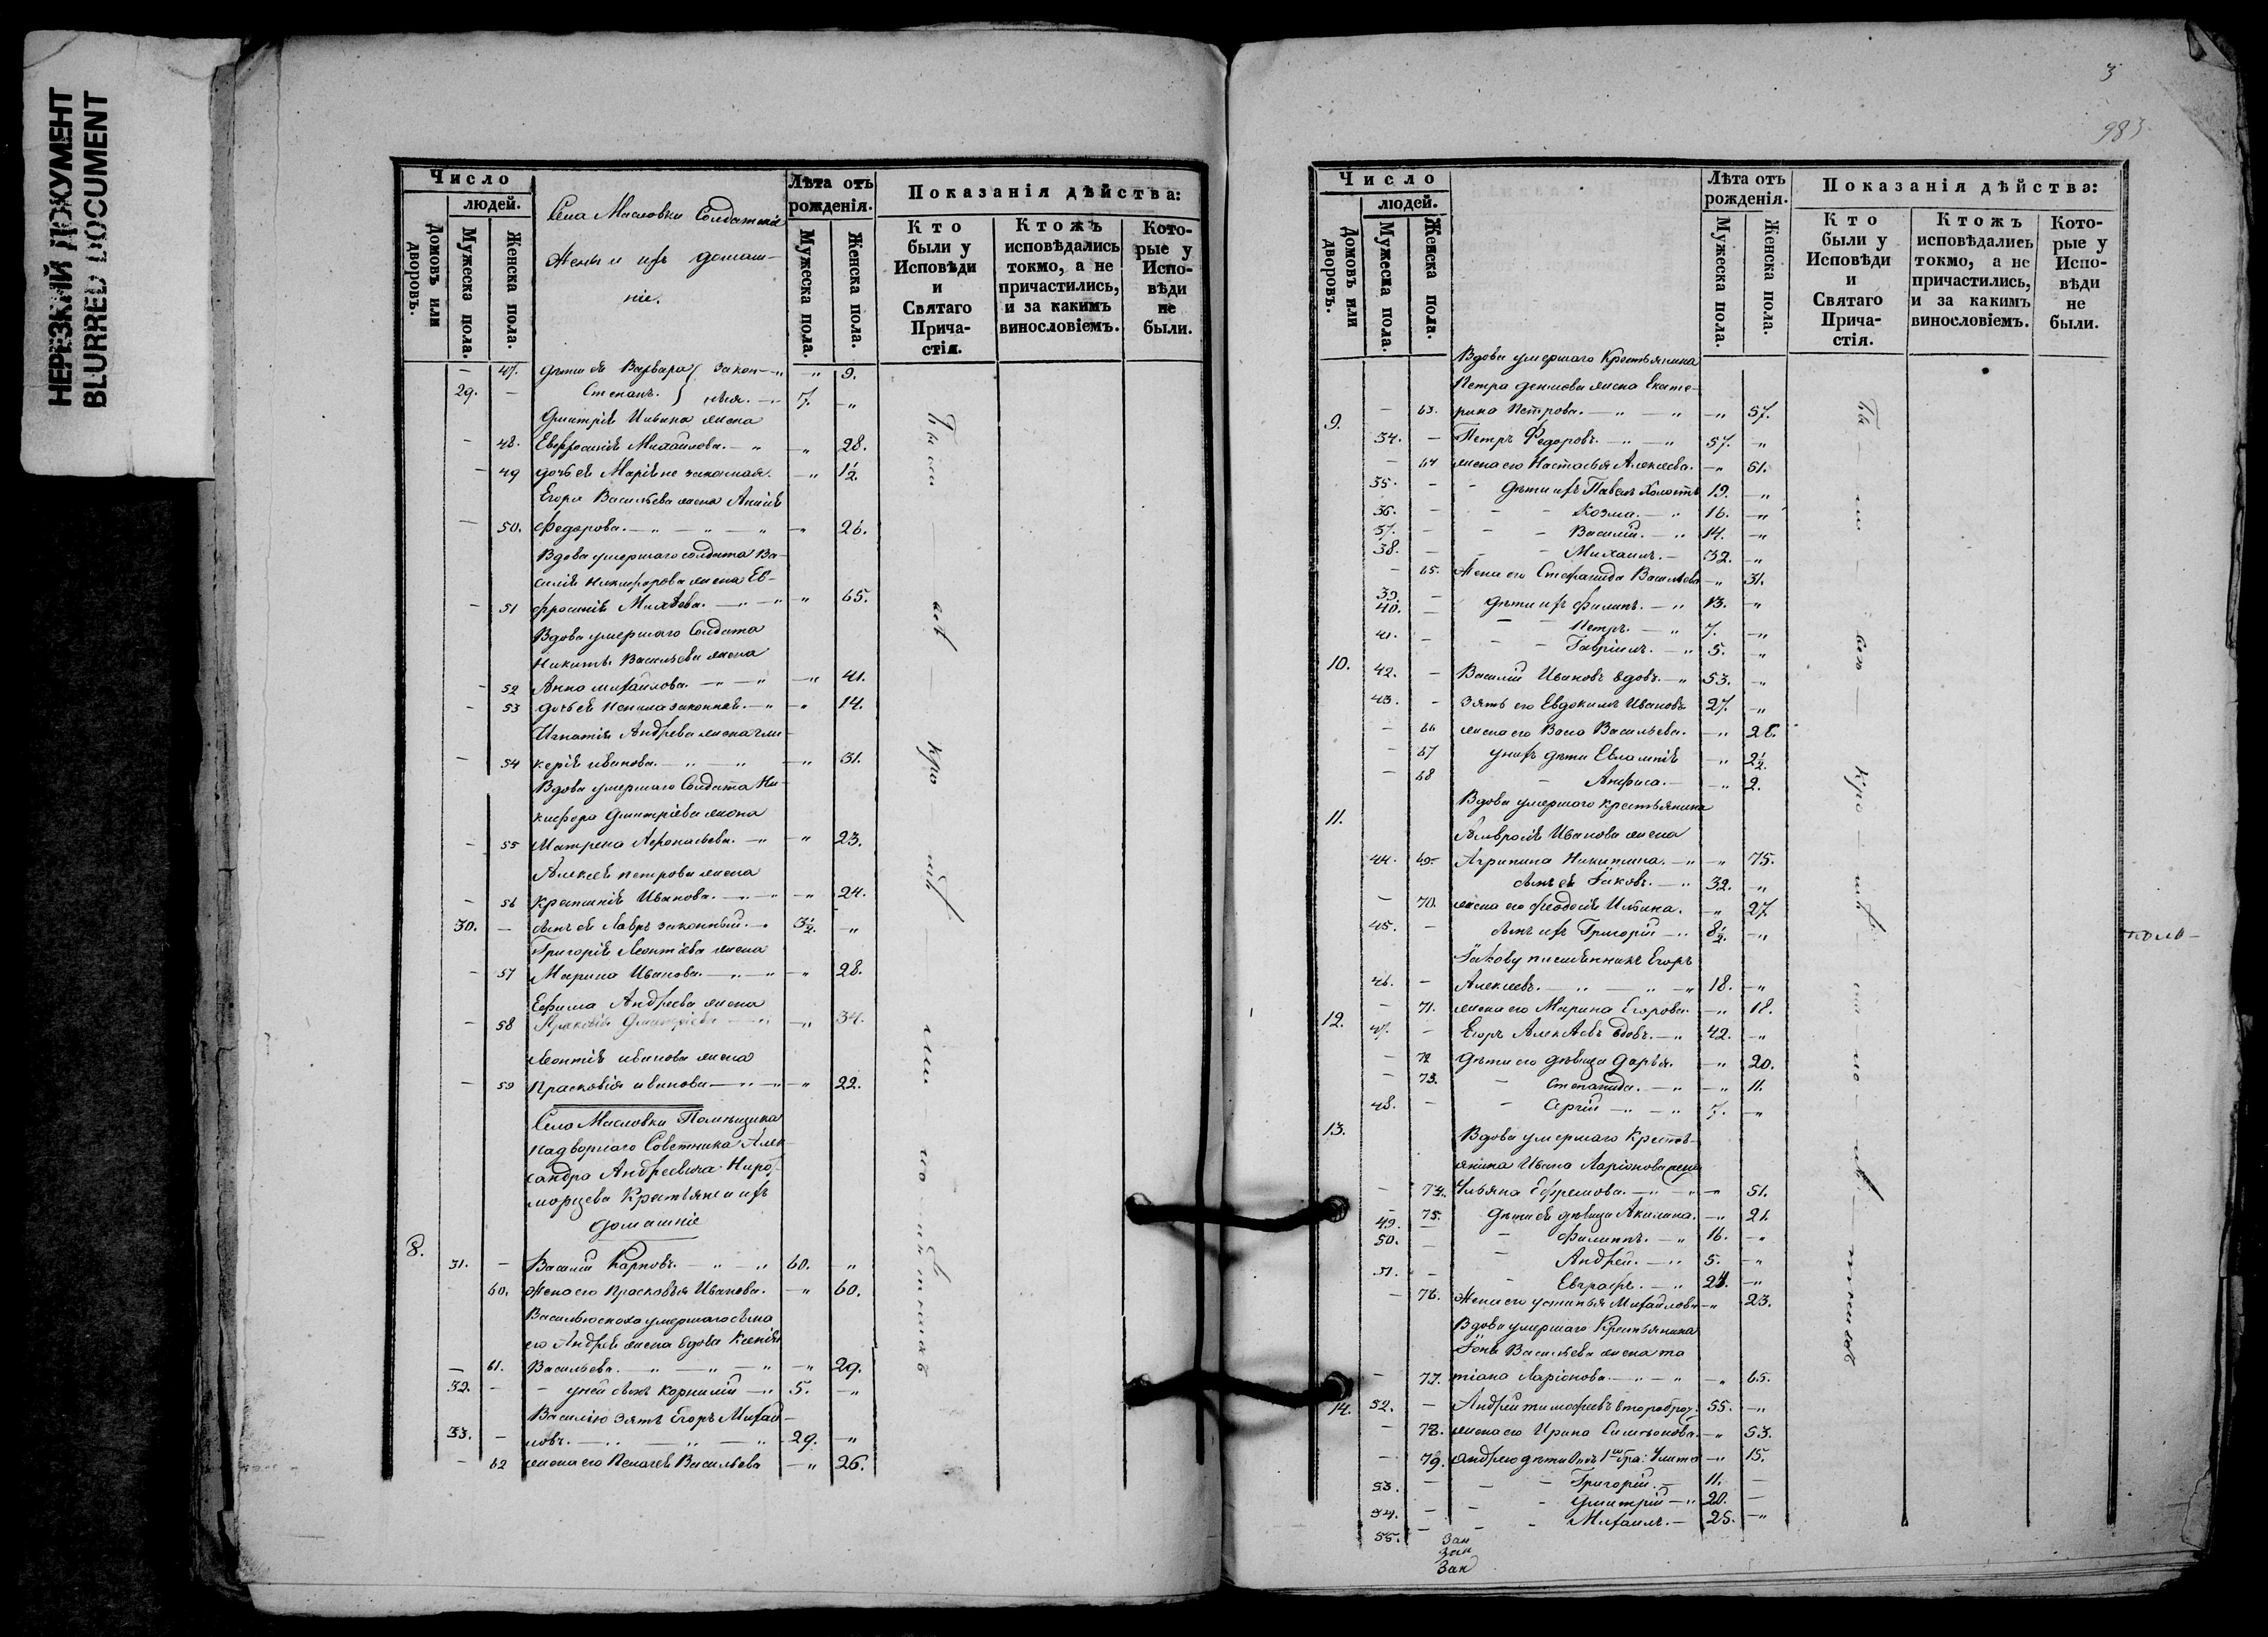 НЕРЕЗКИЙ ДОКУМЕНТ
BLURRED DOCUMENT
Число
людей.
Домовъ или дворовъ.
Мужеска пола.
Женска пола.
Села Масловки Солдатскія
Жены и ихъ домаш-
ніе.
Лѣта отъ рожденія.
Мужеска пола.
Женска пола.
Показанія дѣйства:
Кто были у Исповѣди и Святаго Прича-стія.
Ктожъ исповѣдались токмо, а не причастились, и за какимъ винословіемъ.
Кото-рые у Испо-вѣди не были.
— 47. дѣти ея Варвара } закон- — „ 9.
29. — Степанъ. } ныя. 7. — „
Дмитрія Ильина жена
— 48. Евфросинія Михайлова. — „ „ 28.
— 49 дочь ея Марія не законная. — „ 1½.
Егора Васильева жена Анисія
— 50. Федорова. — „ — „ — „ 26.
Вдова умершаго солдата Ва-
силія Никифорова жена Ев-
— 51 фросинія Михѣева. — „ — „ „ 65.
Вдова умершаго Солдата
Никиты Васильева жена
— 52 Анна михайлова. — „ — „ — „ 41.
— 53 дочь ея законная. — „ — „ 14.
Игнатія Андреева жена гли-
— 54 керія иванова. — „ — „ — „ 31.
Вдова умершаго Солдата Ни-
кифора Дмитріева жена
— 55 Матрена Афонасьева. — „ — „ 23.
Алексея петрова жена
— 56 Иванова. — „ — „ 24.
30. — сынъ ея Лавръ законный. — „ 3½. — „
Григорія Леонтіева жена
— 57 Марина Иванова. — „ — „ — „ 28.
Ефима Андреева жена
— 58 Прасковія Дмитріева — „ — „ 34.
Леонтія иванова жена
— 59 Прасковія иванова — „ — „ 22.
Села Масловки Помѣщика
надворнаго Советника Алек-
сандра Андреевича
Крестьяне и ихъ
домашніе
8.
31. — Василій Карповъ. — „ — „ 60. „
60. Жена его Прасковья Иванова. — „ 60.
Василью сноха умершаго сына
его Андрея жена вдова Ксенія
— 61. Васильева. — „ — „ — „ — „ 29.
32. — — у ней сынъ Корнилій — „ 5. — „
Василію зять Егоръ Михай-
33. — ловъ. — „ — „ — „ 29. — „
— 62 жена его Пелагея Васильева — „ 26.
3
983
Число
людей.
Домовъ или дворовъ.
Мужеска пола.
Женска пола.
Лѣта отъ рожденія.
Мужеска пола.
Женска пола.
Показанія дѣйства:
Кто были у Исповѣди и Святаго Прича-стія.
Ктожъ исповѣдались токмо, а не причастились, и за какимъ винословіемъ.
Кото-рые у Испо-вѣди не были.
Вдова умершаго Крестьянина
Петра денисова жена Екате-
— 63. рина Петрова. — „ — „ — „ 57.
9.
34. — Петръ Федоровъ. — „ — „ 57. „
— 64 жена его Настасья Алексеева. — „ 51.
35. — — дѣти ихъ Павелъ Холостъ 19. — „
36. — — Козма. — „ 16. — „
37. — — Василій. — „ 14. — „
38. — — Михаилъ. — 32. — „
— 65. Жена его Стефанида Васильева — „ 31.
39. — дѣти ихъ Филипъ. — „ 13. — „
40. — — Петръ. — „ 7. — „
41. — — Гавріилъ. — „ 5. — „
10.
42. — Василій Ивановъ вдовъ. — „ 53. — „
43. — Зять его Евдокимъ Ивановъ 27. — „
— 66 жена его Васа Васильева. — „ 26.
— 67 у нихъ дѣти Евлампія — „ 2½.
— 68 — Анфиса. — — „ 2.
11.
Вдова умершаго крестьянина
Амвросія Иванова жена
69. Агрипина Никитина. — „ — „ 75.
44. сынъ ея Іаковъ. — „ 32. — „
— 70. жена его Феодосія Ильина. — „ 27
45. — сынъ ихъ Григорій — „ 8½. — „
Іакову племянникъ Егоръ
46. — Алексеевъ. — „ — „ — „ 18. — „
— 71. жена его Марина Егорова. — „ 18.
12.
47. — Егоръ Алексѣевъ вдовъ. — „ 42. — „
— 72 дѣти его дѣвица Дарья. — „ 20.
— 73. — Степанида. — „ — „ 11.
48. — — Сергій — „ — „ 7. — „
13.
Вдова умершаго Кресть-
янина Ивана Ларіонова жена
— 74. Ульяна Ефремова. — „ — „ 51.
— 75. дѣти ея дѣвица Акилина. — „ 21.
49. — — Филиппъ. — „ 16. — „
50. — — Андрей. — „ 5. — „
51. — — Евграфъ. — „ 24. — „
— 76. Жена его устинья Михайлова — „ 23.
Вдова умершаго Крестьянина
Іоны Васильева жена та-
— 77. тіана Ларіонова. — „ — „ — „ 65.
14.
52. — Андрей тимофеевъ второбрач. 55. — „
— 78. жена его Ирина Симеонова. — „ 53.
— 79. Андрею дѣти отъ 1го бра: Улита — „ 15.
53. — — Григорій. — 11. —
54. — — Дмитрій — „ 20. —
55. — — Михаилъ. — 25. — „
Зак
Зак
Зак